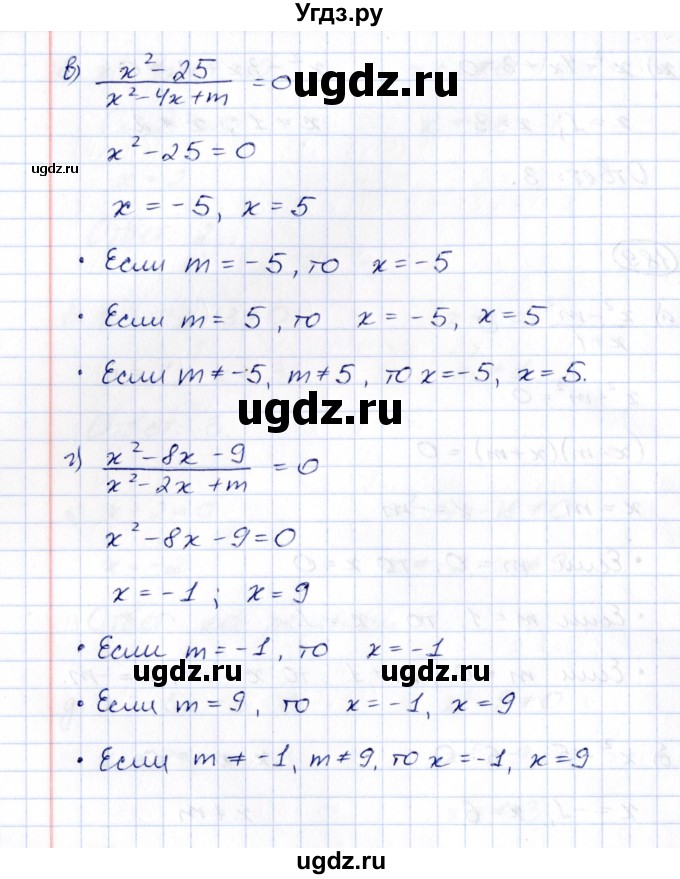 Угдз.ру
в) (x² - 25)/(x² - 4x + m) = 0
ugdz.ru
x² - 25 = 0
ugdz.ru
x = -5, x = 5
• Если m = -5, то x = -5
• Если m = 5, то x = -5, x = 5
• Если m ≠ -5, m ≠ 5, то x = -5, x = 5.
ugdz.ru
г) (x² - 8x - 9)/(x² - 2x + m) = 0
x² - 8x - 9 = 0
x = -1; x = 9
• Если m = -1, то x = -1
ugdz.ru ugdz.ru
• Если m = 9, то x = -1, x = 9
• Если m ≠ -1, m ≠ 9, то x = -1, x = 9
ugdz.ru